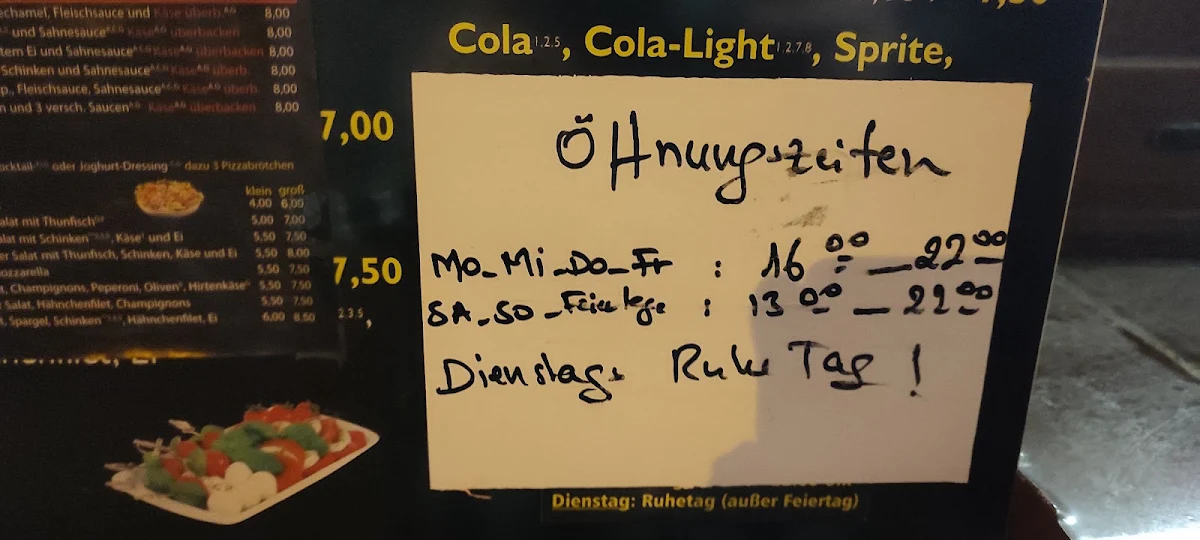 echamel, Fleischsauce und Käse überb. 8,00
und Sahnesauce Käse überbacken 8,00
tem Ei und Sahnesauce Käse überbacken 8,00
Schinken und Sahnesauce Käse überb. 8,00
p., Fleischsauce, Sahnesauce Käse überb. 8,00
n und 3 versch. Saucen Käse überbacken 8,00
7,00
ocktail- oder Joghurt-Dressing dazu 3 Pizzabrötchen
klein groß
4,00 6,00
alat mit Thunfisch 5,00 7,00
alat mit Schinken, Käse und Ei 5,50 7,50
er Salat mit Thunfisch, Schinken, Käse und Ei 5,50 8,00
ozzarella 5,50 7,50
t, Champignons, Peperoni, Oliven, Hirtenkäse 5,50 7,50
Salat, Hähnchenfilet, Champignons 5,50 7,50
t, Spargel, Schinken, Hähnchenfilet, Ei 6,00 8,50
7,50
2,3,5,
Cola 1,2,5, Cola-Light 1,2,7,8, Sprite,
Öffnungszeiten
Mo-Mi-Do-Fr : 16 00 - 22 00
SA-SO-Feiertage : 13 00 - 22 00
Dienstags Ruhe Tag !
Dienstag: Ruhetag (außer Feiertag)